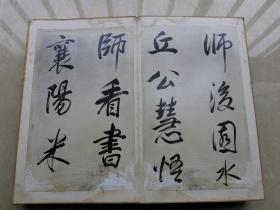 师後園水
丘公慧悟
師看書
襄陽米